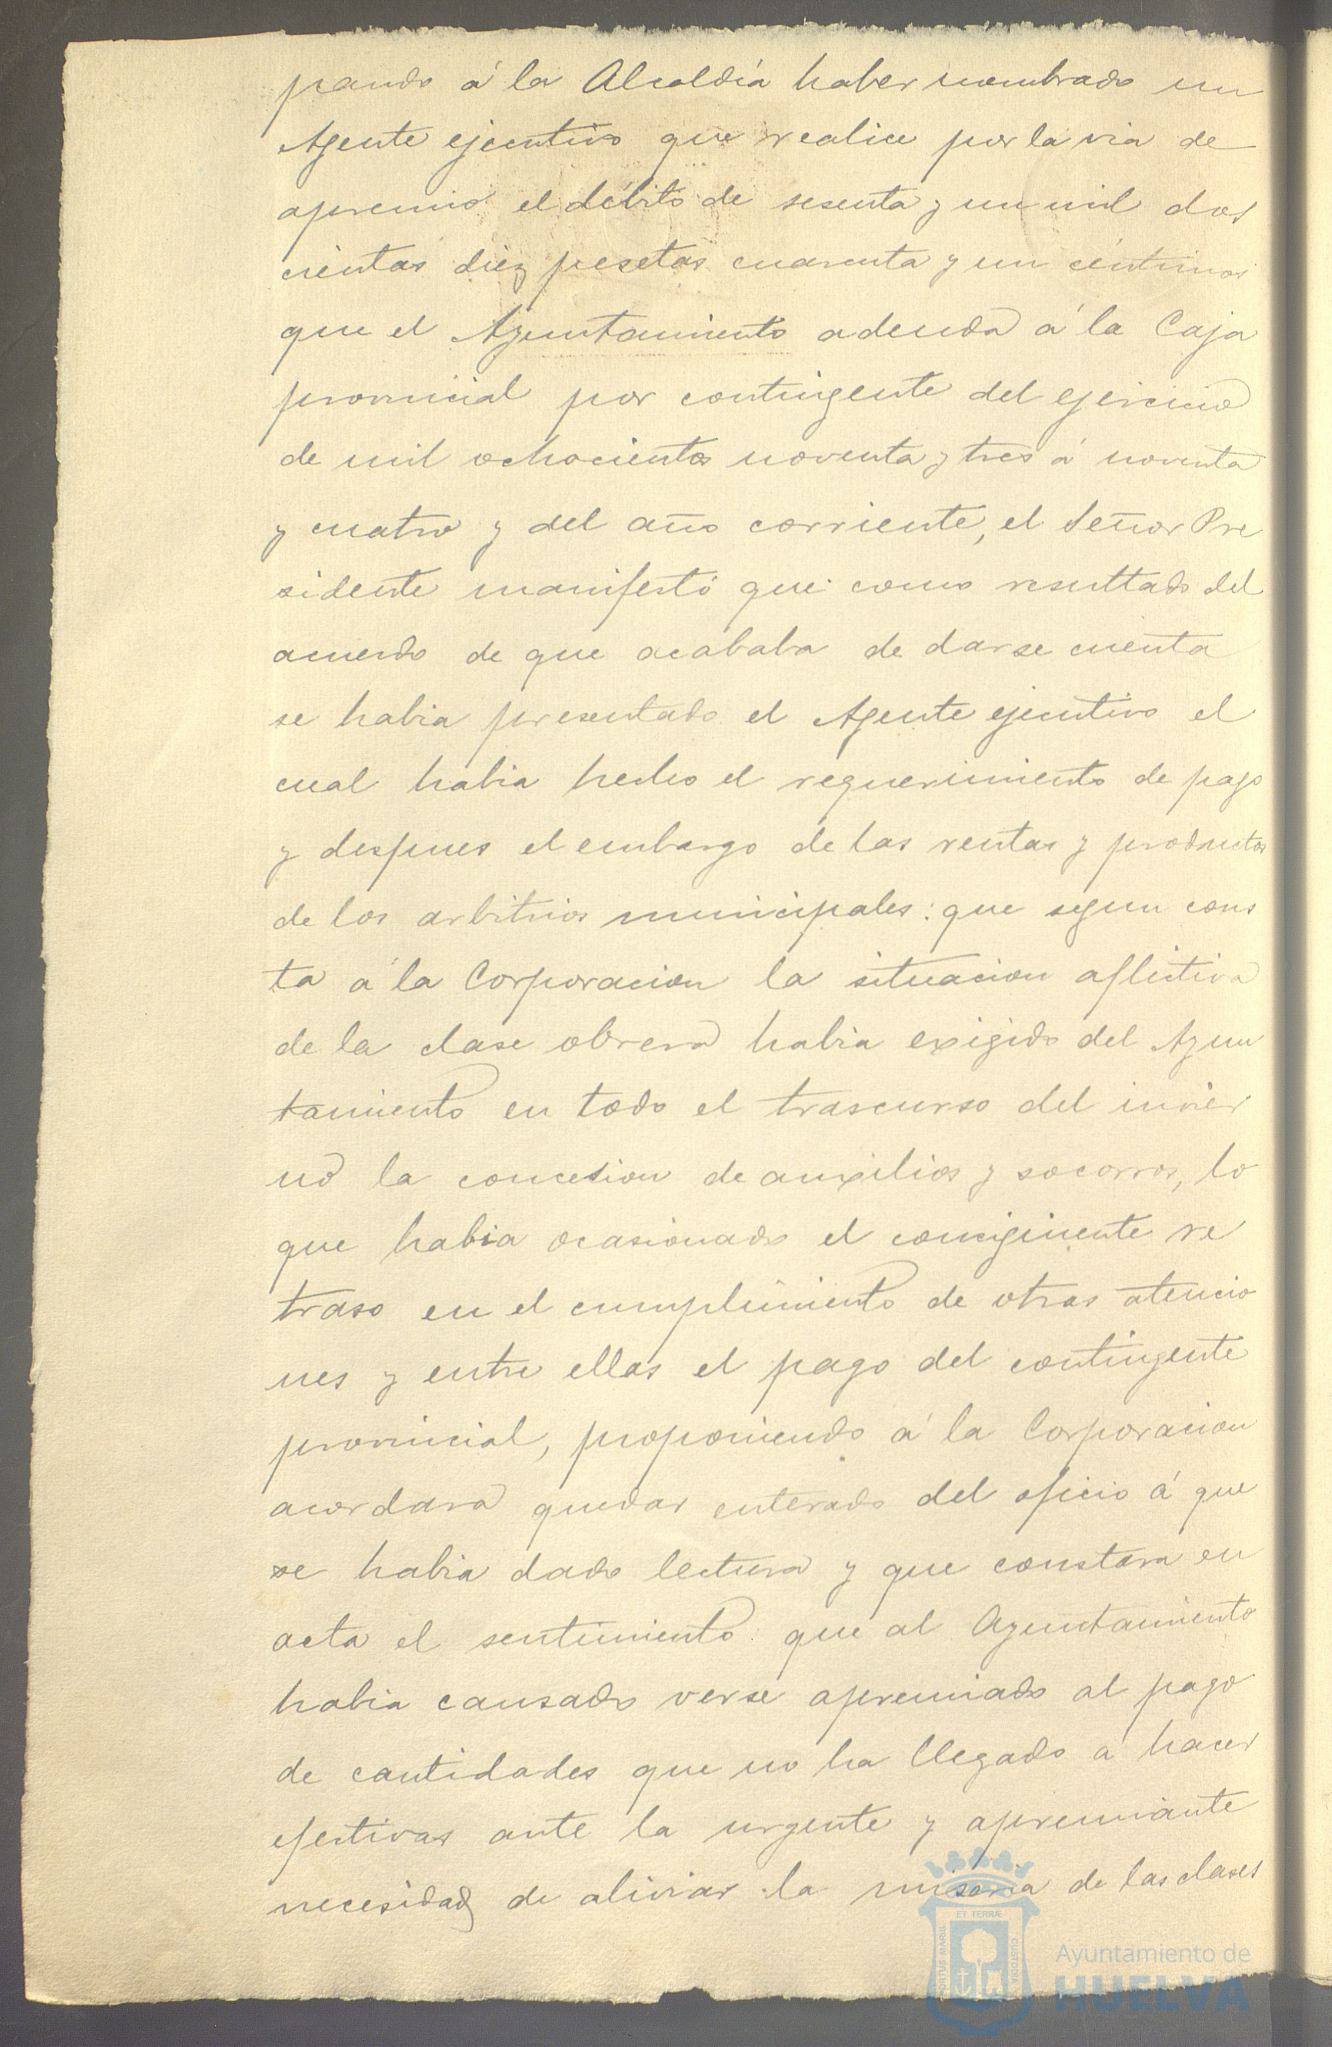 pando á la Alcaldía haber nombrado un
Agente ejecutivo que realice por la via de
apremio el débito de sesenta y un mil dos
cientas diez pesetas cuarenta y un céntimos
que el Ayuntamiento adeuda á la Caja
provincial por contingente del ejercicio
de mil ochocientos noventa y tres á noventa
y cuatro y del año corriente, el Señor Pre
sidente manifestó que como resultado del
acuerdo de que acababa de darse cuenta
se habia presentado el Agente ejecutivo el
cual habia hecho el requerimiento de pago
y despues el embargo de las rentas y productos
de los arbitrios municipales: que segun cons
ta á la Corporacion la situacion aflictiva
de la clase obrera habia exigido del Ayun
tamiento en todo el trascurso del invier
no la concesion de auxilios y socorros, lo
que habia ocasionado el consiguiente re
traso en el cumplimiento de otras atencio
nes y entre ellas el pago del contingente
provincial, proponiendo á la Corporacion
acordara quedar enterado del oficio á que
se habia dado lectura y que constara en
acta el sentimiento que al Ayuntamiento
habia causado verse apremiado al pago
de cantidades que no ha llegado a hacer
efectivas ante la urgente y apremiante
necesidad de aliviar la miseria de las clases
Ayuntamiento de
HUELVA